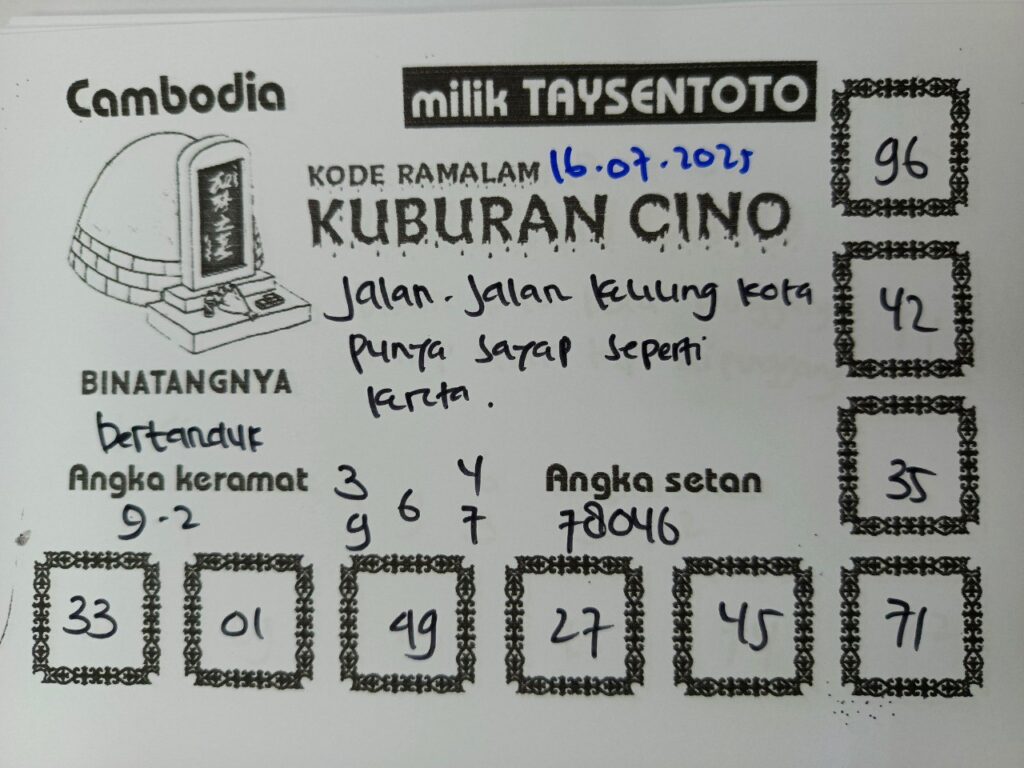 Cambodia
milik TAYSENTOTO
KODE RAMALAM 16.07.2025
KUBURAN CINO
Jalan-Jalan keliling kota
punya sayap seperti
kereta.
BINATANGNYA
bertanduk
Angka keramat
9-2
3 4
6
9 7
Angka setan
78046
96
42
35
33 01 49 27 45 71